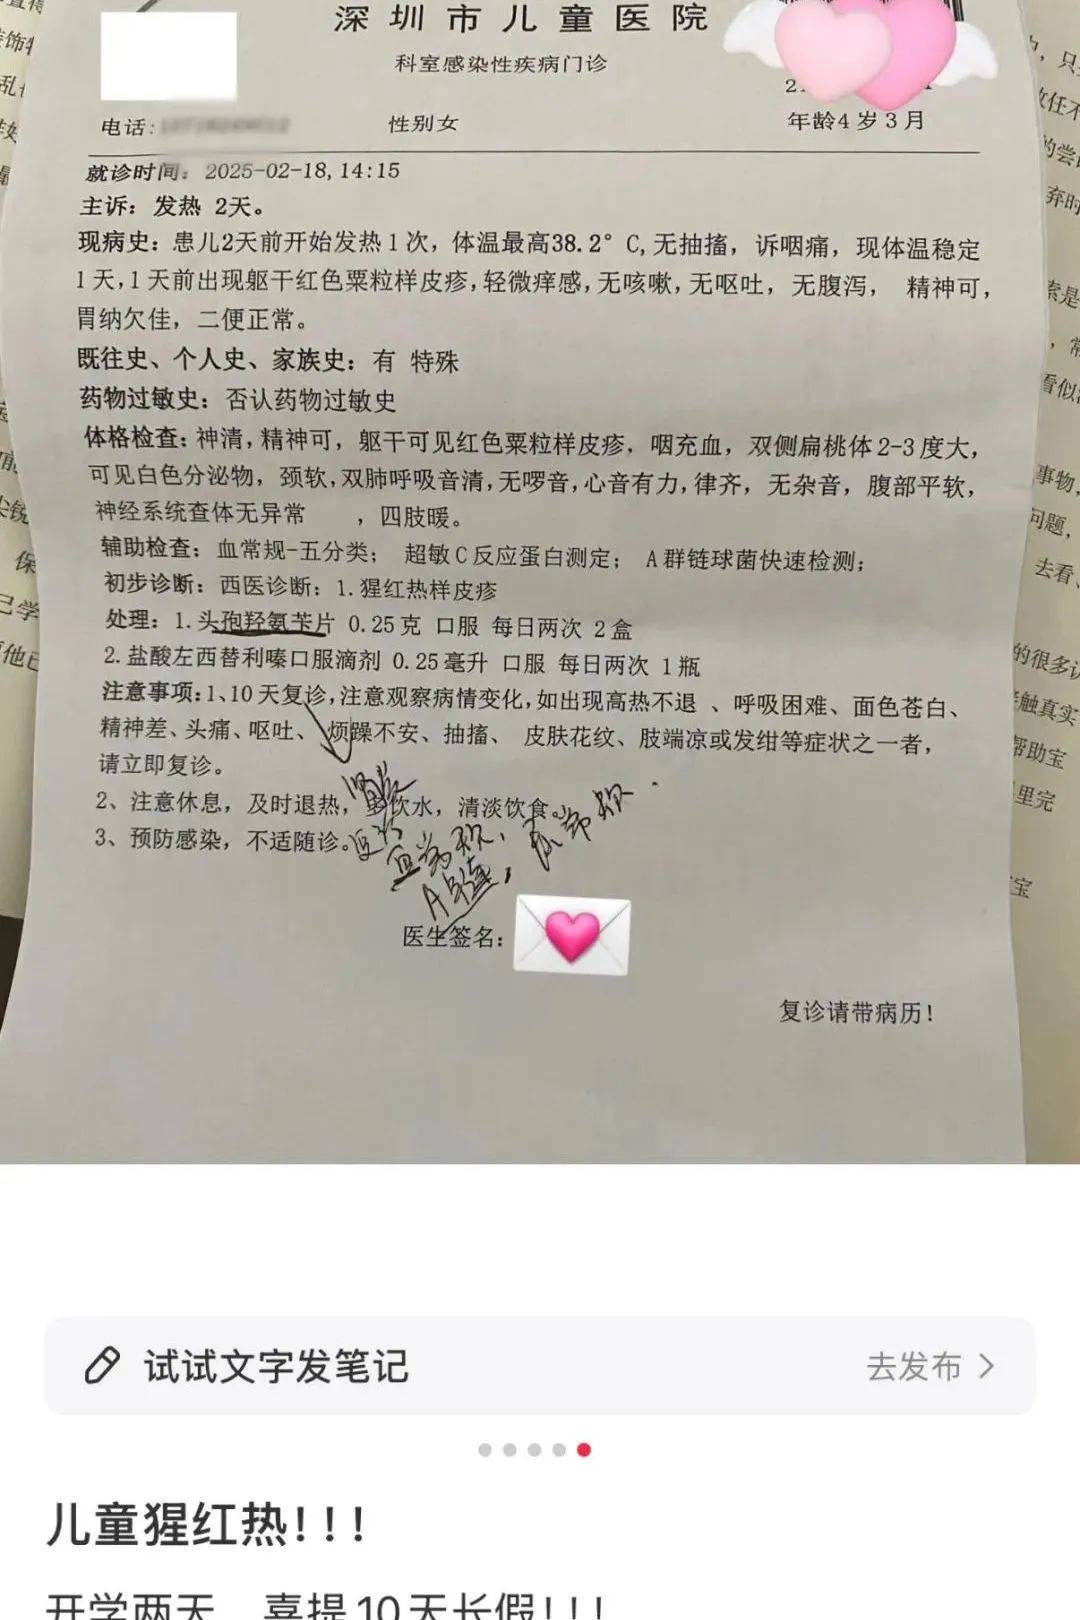 深圳市儿童医院
科室感染性疾病门诊
电话:
性别女
年龄4岁3月
就诊时间：2025-02-18,14:15
主诉：发热 2天。
现病史：患儿2天前开始发热1次，体温最高38.2°C,无抽搐，诉咽痛，现体温稳定
1天,1天前出现躯干红色粟粒样皮疹,轻微痒感,无咳嗽,无呕吐，无腹泻， 精神可,
胃纳欠佳，二便正常。
既往史、个人史、家族史：有 特殊
药物过敏史：否认药物过敏史
体格检查:神清,精神可，躯干可见红色粟粒样皮疹，咽充血，双侧扁桃体2-3度大,
可见白色分泌物，颈软,双肺呼吸音清,无啰音,心音有力,律齐，无杂音，腹部平软,
神经系统查体无异常 ，四肢暖。
辅助检查：血常规-五分类； 超敏C反应蛋白测定； A群链球菌快速检测；
初步诊断：西医诊断：1.猩红热样皮疹
处理：1.头孢羟氨苄片 0.25克 口服 每日两次 2盒
2.盐酸左西替利嗪口服滴剂 0.25毫升 口服 每日两次 1瓶
注意事项:1、10天复诊,注意观察病情变化,如出现高热不退 、呼吸困难、面色苍白、
精神差、头痛、呕吐、 烦躁不安、抽搐、 皮肤花纹、肢端凉或发绀等症状之一者，
请立即复诊。
2、注意休息，及时退热，多饮水，清淡饮食。
3、预防感染，不适随诊。
A链,
医生签名：
复诊请带病历!
试试文字发笔记
去发布 >
儿童猩红热!!!
开学两天，喜提10天长假!!!